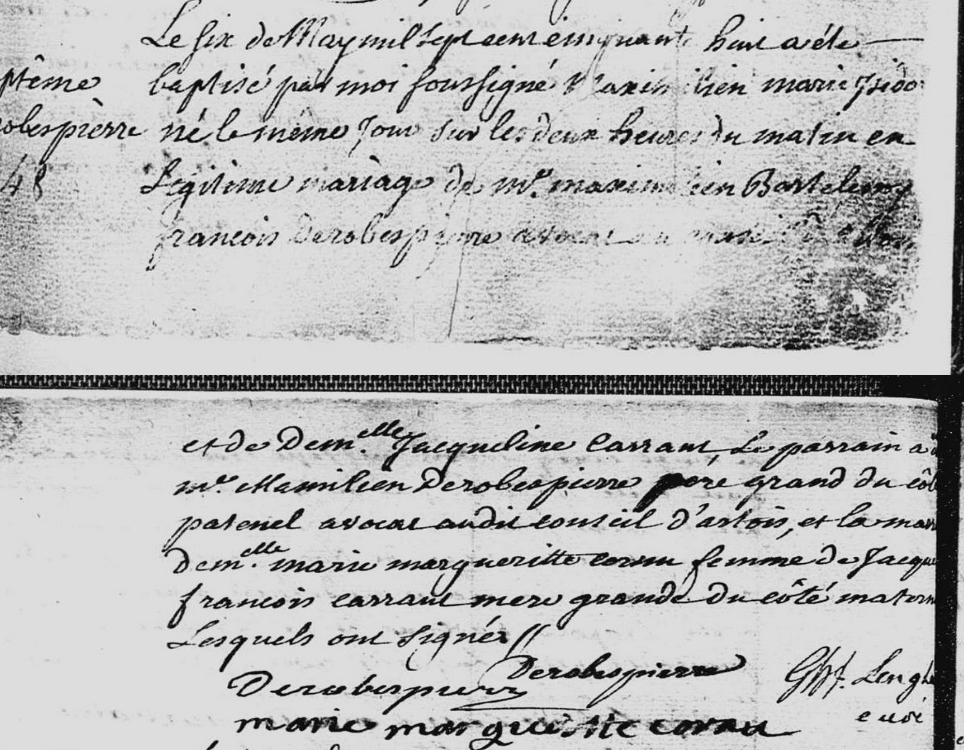 Le six de May mil sept cent cinquante huit a été
baptisé par moi soussigné Maximilien marie Isido
né le même Jour sur les deux heures du matin en
Légitime mariage de mr. maximilien Bartelemy
francois Derobespierre avocat au conseil
ptême
obespierre
48
et de Demelle. Jacqueline Carraut Le parrain a
mr. Mamilien Derobespierre pere grand du cô
paternel avocat audit conseil d'artois, et la mar
demelle. marie margueritte cornu femme de Jacqu
francois carraut mere grande du côté matern
Lesquels ont signés //
Derobespierre Derobespierre
marie margueritte cornu
Lengl
curé